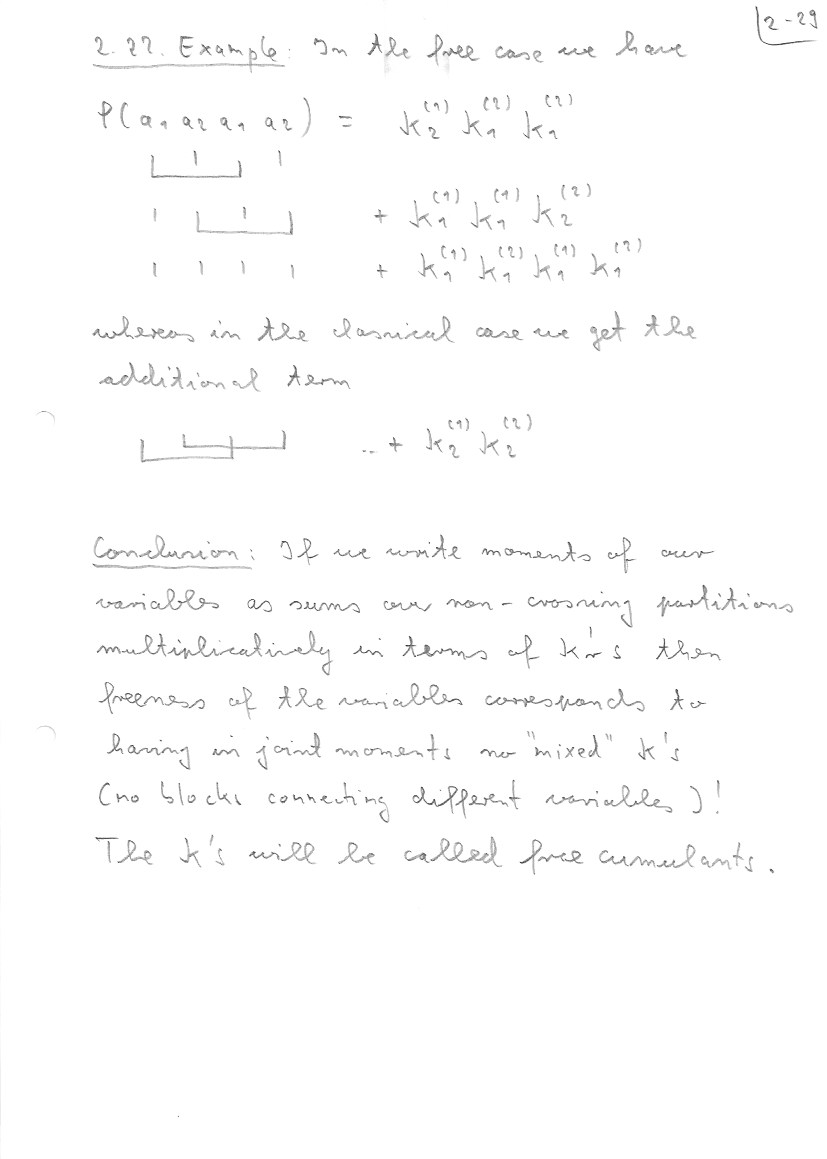 2-29
2.27. Example: In the free case we have
φ(a₁ a₂ a₁ a₂) = k₂⁽¹⁾ k₁⁽²⁾ k₁⁽²⁾
+ k₁⁽¹⁾ k₁⁽¹⁾ k₂⁽²⁾
+ k₁⁽¹⁾ k₁⁽²⁾ k₁⁽¹⁾ k₁⁽²⁾
whereas in the classical case we get the
additional term
.. + k₂⁽¹⁾ k₂⁽²⁾
Conclusion: If we write moments of our
variables as sums over non-crossing partitions
multiplicatively in terms of k's then
freeness of the variables corresponds to
having in joint moments no "mixed" k's
(no blocks connecting different variables)!
The k's will be called free cumulants.